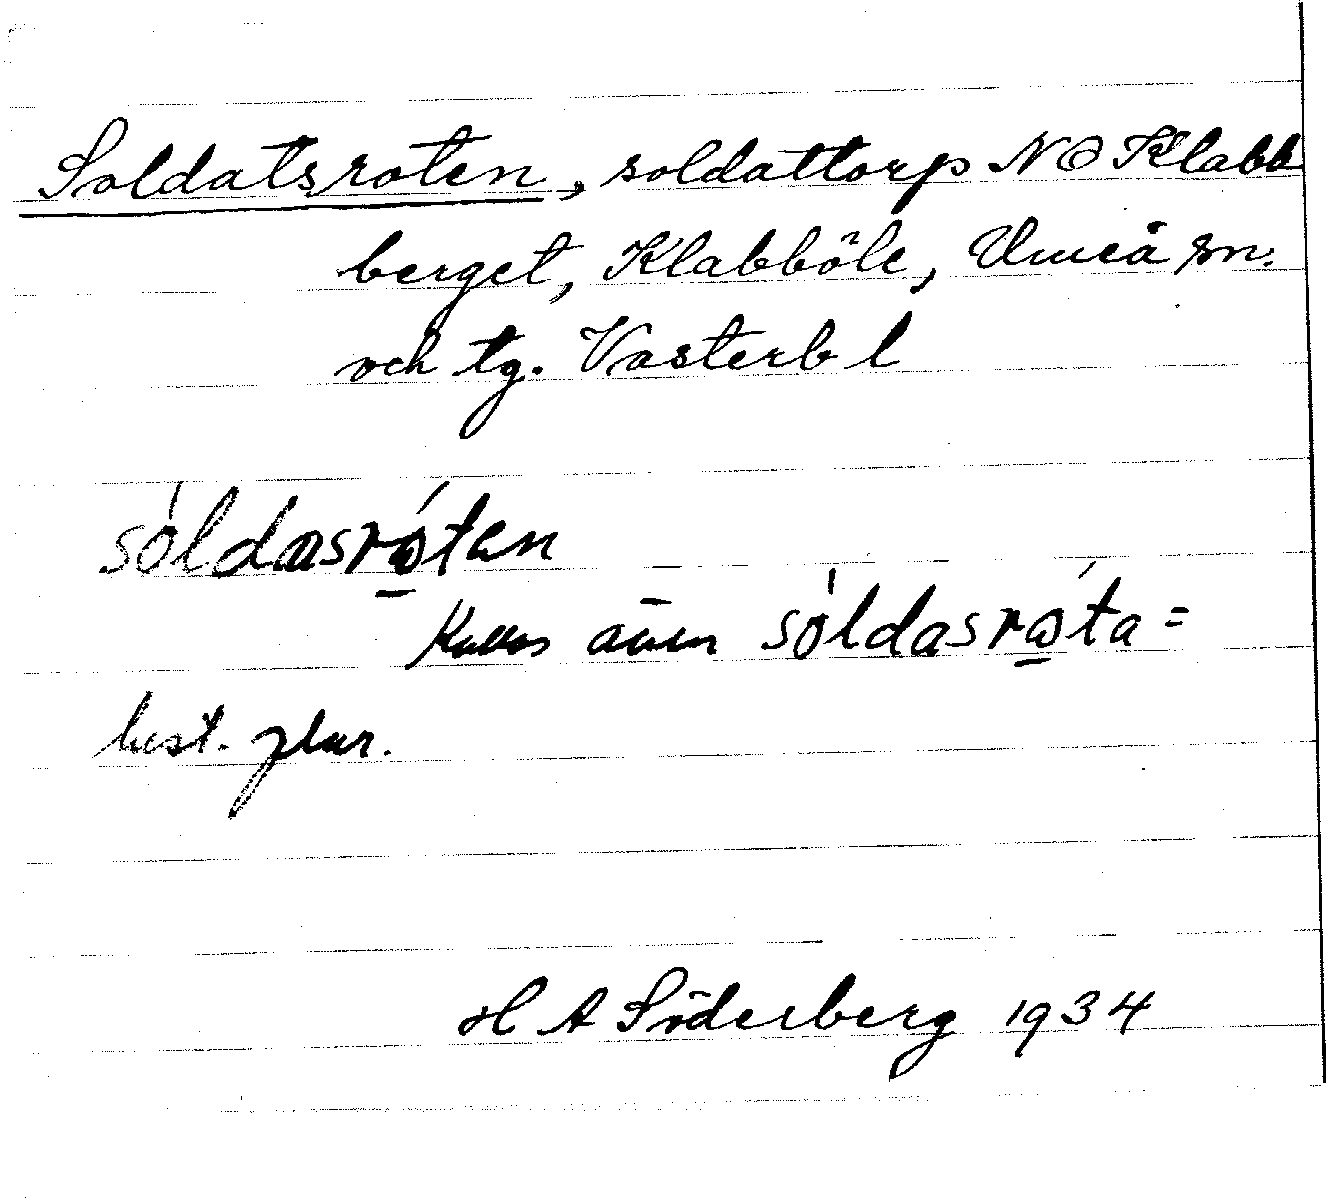 Soldatsroten, soldattorp NO Klabb
berget, Klabböle, Umeå sn.
och tg. Vasterb l
sóldasróten
Kallas även sóldasróta =
best. plur.
H A Söderberg 1934